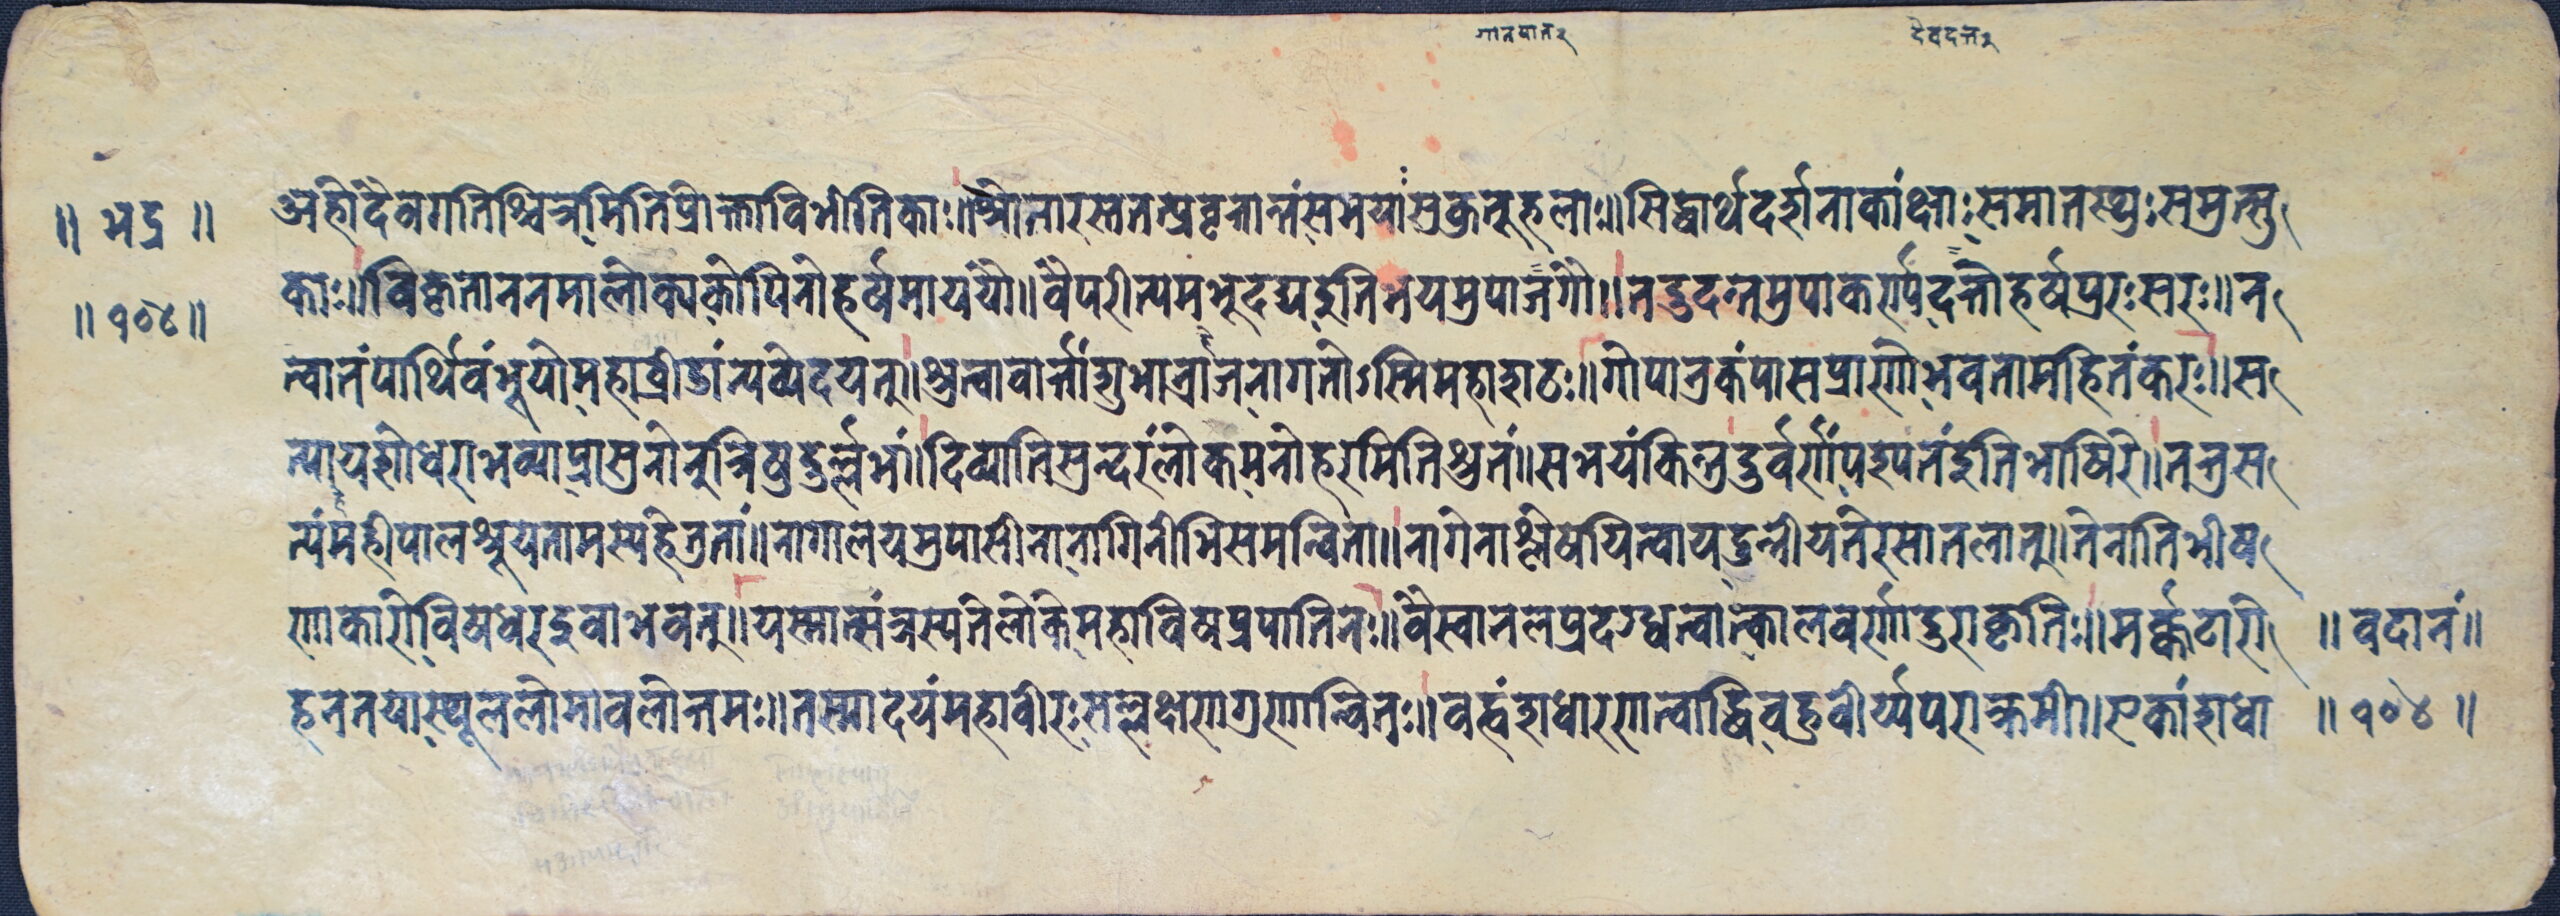 गानयान २ देवदत्त २
॥ भद्र ॥
॥ १०४ ॥
अहोदैवगतिश्चित्रमितिप्रोक्ताविभीतिकाः॥श्रोतारस्तनत्प्रवृत्तान्तंसभयांसुकुतूहलाः॥सिद्धार्थदर्शनाकांक्षाःसमातस्थुःसमुत्सु
काः॥विकृताननमालोक्यकोपिनोहर्षमाययौ॥वैपरीत्यमभूदद्यइतिभयमुपाजगौ॥तदुदन्तमुपाकर्ण्यदत्तोहर्षपुरःसरः॥न
त्वातंपार्थिवंभूयोमहाव्रीडांन्यवेदयत्॥श्रुत्वावार्त्तांशुभांर्त्राजन्नागतोऽस्मिमहाशठः॥गोपात्रकंपासप्राणोभवतामहितंकरः॥स
त्यायशोधराभव्याप्रासुतोत्रिषुदुर्ल्लभां॥दिव्यातिसुन्दरंलोकमनोहरमितिश्रुतं॥सभयंकिन्तुदुर्वर्णंपश्यतंइतिभाषिरे॥तत्रस
त्यंमहीपालश्रूयतामस्यहेतुतां॥नागालयमुपासीनानागिनीभिसमन्विता॥नागेनाश्लेषयित्वायदुन्नीयतेरसातलात्॥तेनातिभीष
णाकारोविषधरइवाभवत्॥यस्मात्संत्रस्यतेलोकेमहाविषप्रपातिनः॥वैस्वानलप्रदग्धत्वात्कालवर्णोदुराकृतिः॥मर्क्कटारो
हनतयास्थूललोमावलोत्तमः॥तस्मादयंमहावीरःसल्लक्षणगुणान्वितः॥वह्वंशधारणत्वाद्धिवहुवीर्य्यपराक्रमी॥एकांशधा
॥ वदानं॥
॥ १०४ ॥